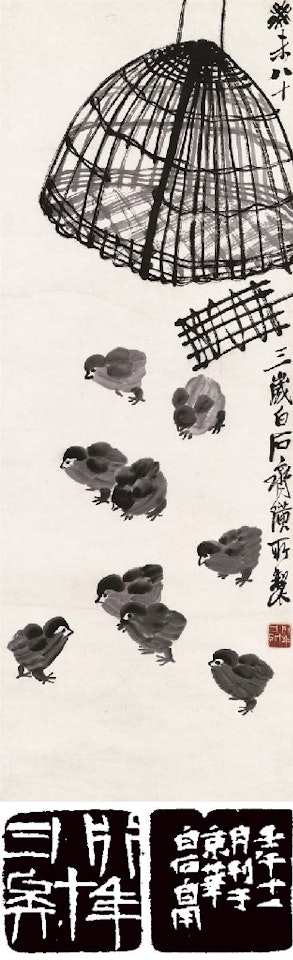 癸未八十
三歲白石齊璜所製
壬午十一
月刊于
京華
白石自用